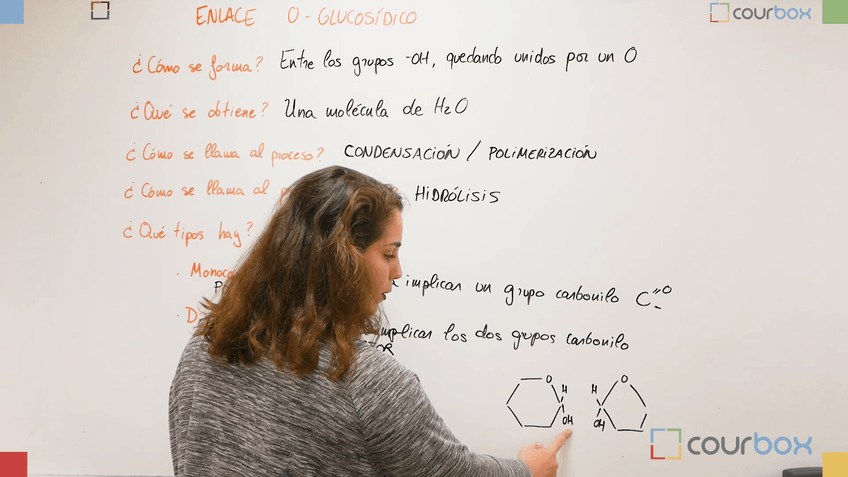 ENLACE O-GLUCOSÍDICO
courbox
¿Cómo se forma? Entre los grupos -OH, quedando unidos por un O
¿Qué se obtiene? Una molécula de H2O
¿Cómo se llama al proceso? CONDENSACIÓN / POLIMERIZACIÓN
¿Cómo se llama al HIDRÓLISIS
¿Qué tipos hay?
implicar un grupo carbonilo C=O
implicar los dos grupos carbonilo
O H H O
OH OH
courbox